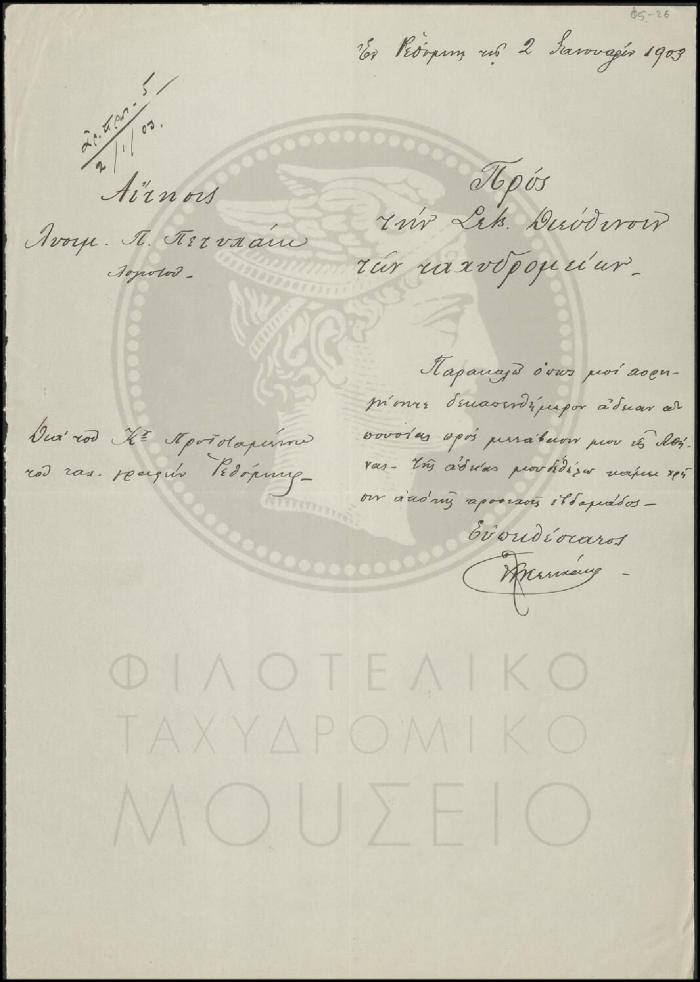 05-26
Ἐν Ρεθύμνῃ τῇ 2 Ἰανουαρίου 1903
ἀρ. πρωτ. 5
2/1/03.
Αἴτησις
Λυσιμ. Π.
Πρός
τὴν Σεβ. Διεύθυνσιν
τῶν ταχυδρομείων
Παρακαλῶ ὅπως μοὶ χορη-
γήσητε δεκαπενθήμερον ἄδειαν ἀ-
πουσίας πρὸς μετάβασίν μου εἰς Ἀθή-
νας. Τῆς ἀδείας μου θέλω κάμει χρῆ-
σιν ἀπὸ τῆς προσεχοῦς ἑβδομάδος
Εὐπειθέστατος
Διὰ τοῦ Κου Προϊσταμένου
τοῦ ταχ. γραφείου Ρεθύμνης
ΦΙΛΟΤΕΛΙΚΟ
ΤΑΧΥΔΡΟΜΙΚΟ
ΜΟΥΣΕΙΟ